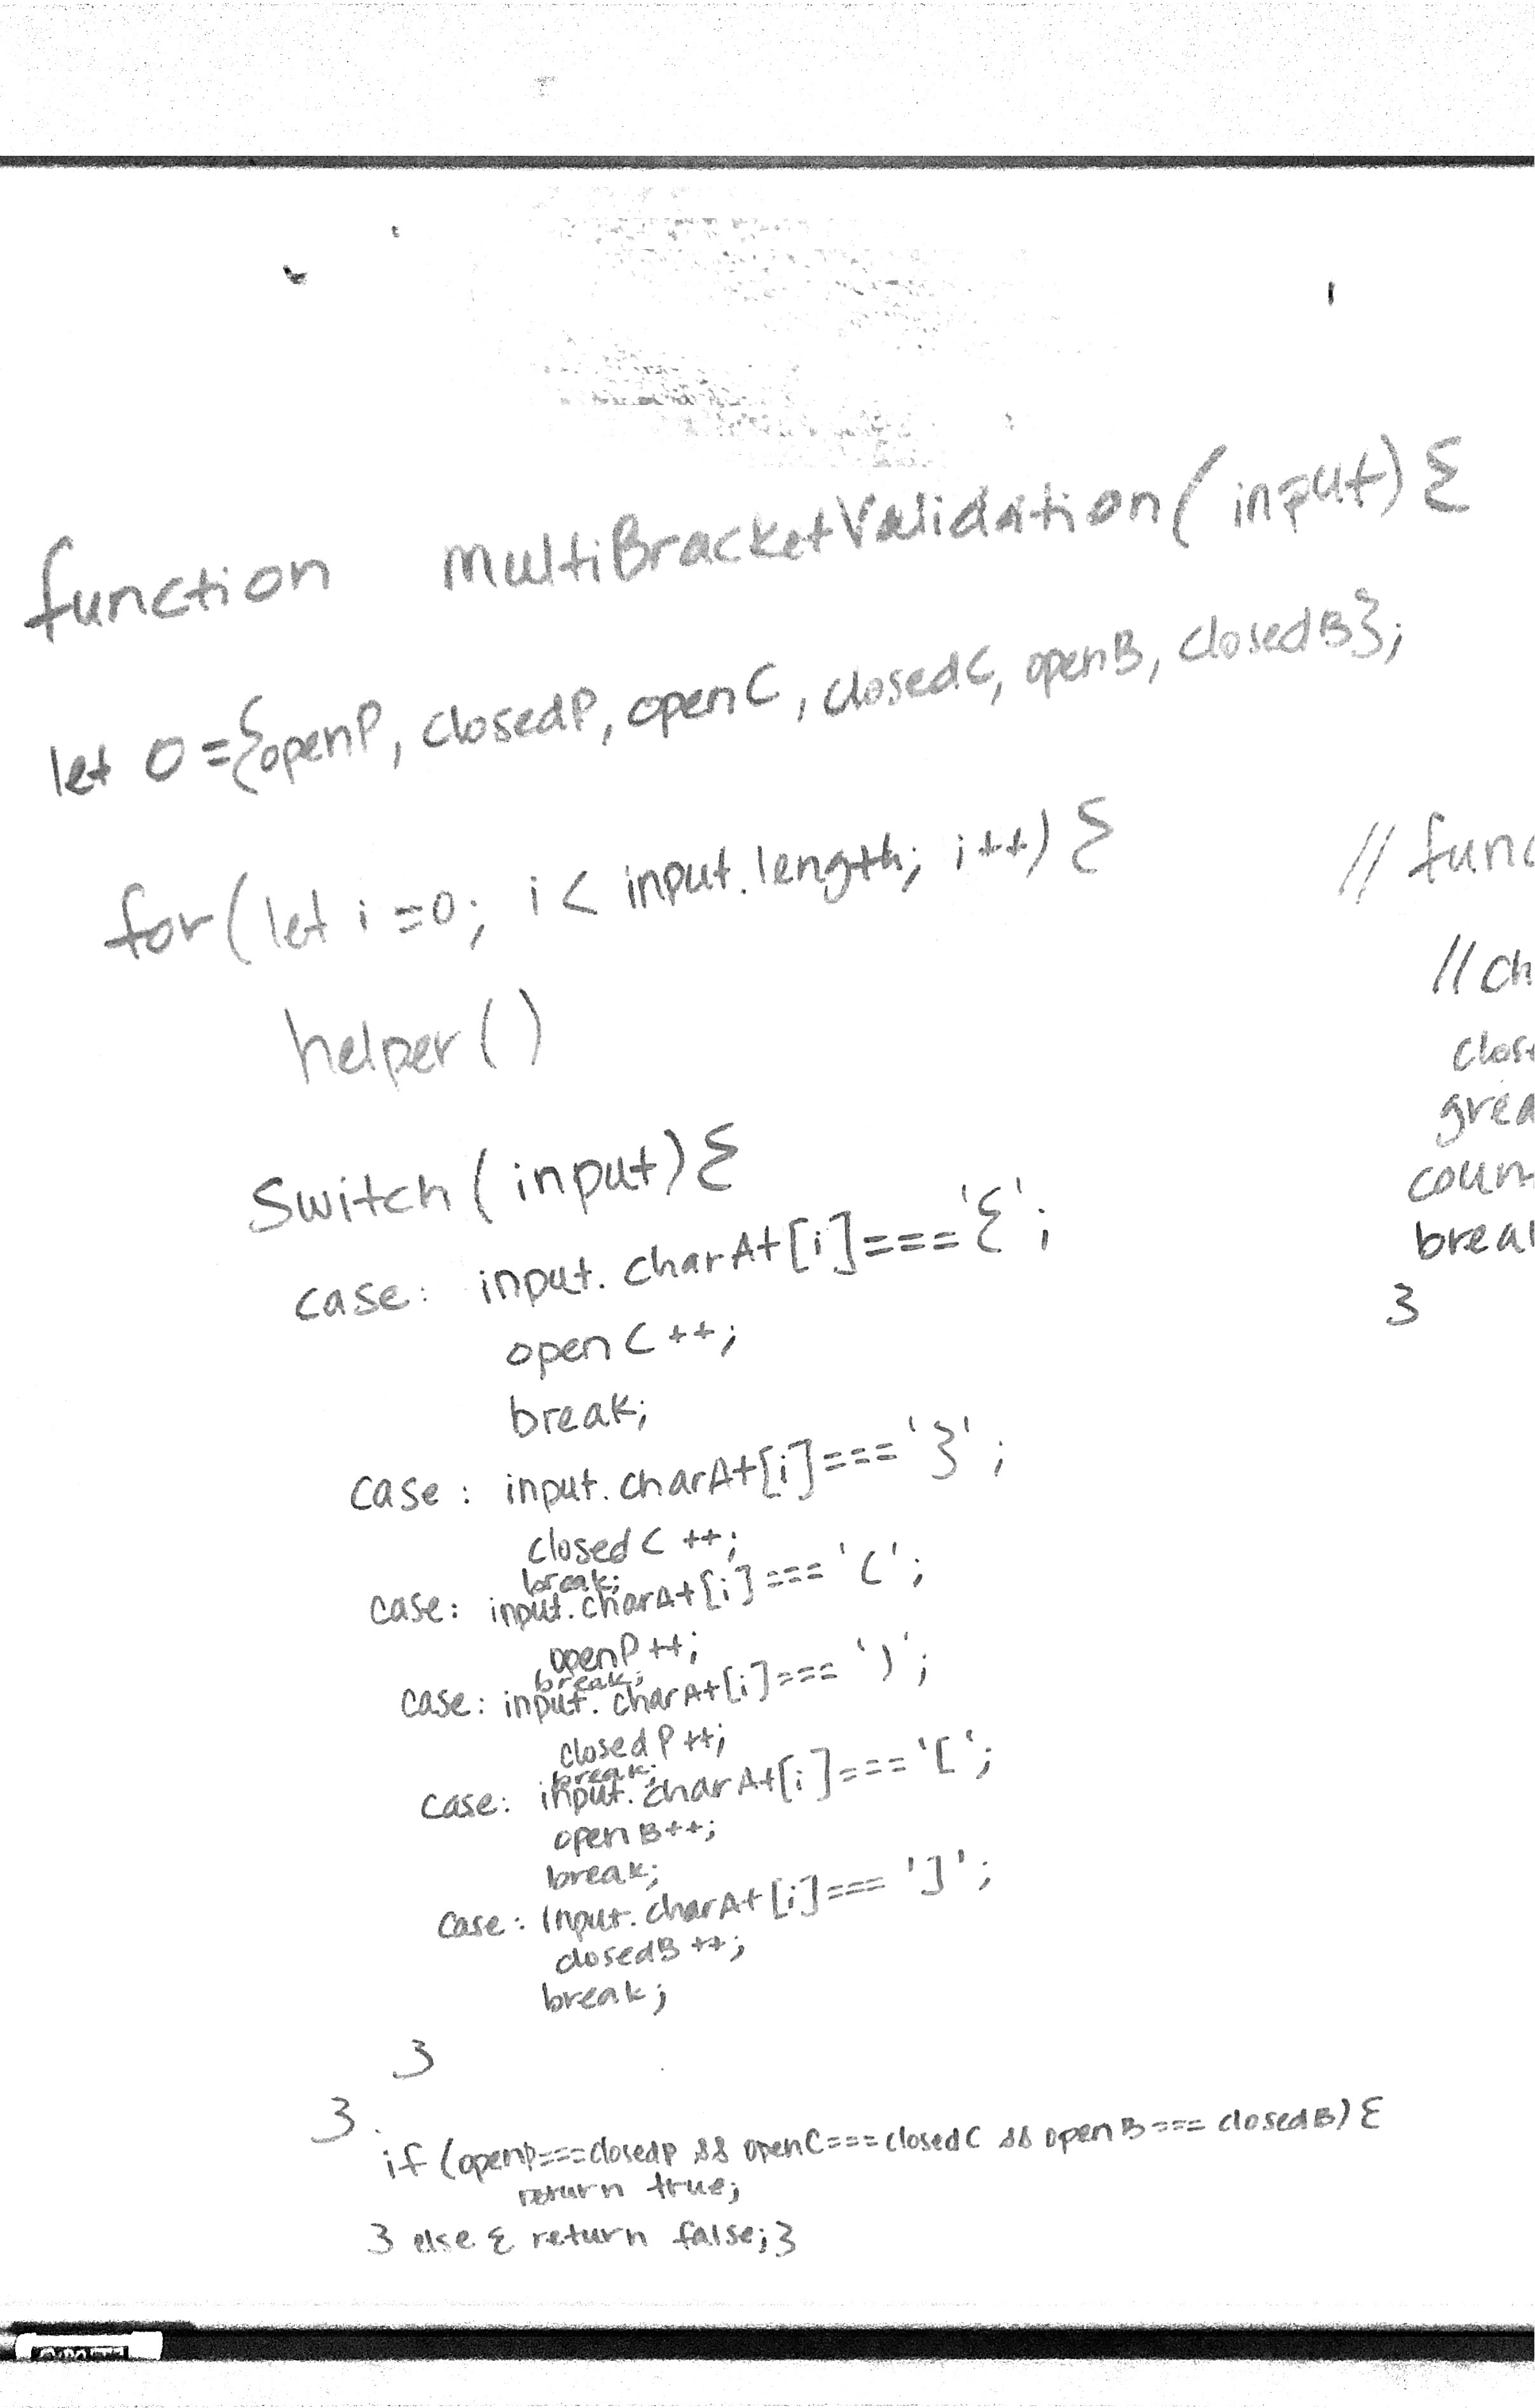 function multiBracketValidation(input){
let O={openP, closedP, openC, closedC, openB, closedB};
for(let i=0; i< input.length; i++){
helper()
Switch(input){
case: input.charAt[i]==='{';
openC++;
break;
case: input.charAt[i]==='}';
closedC++;
break;
case: input.charAt[i]==='(';
openP++;
break;
case: input.charAt[i]===')';
closedP++;
break;
case: input.charAt[i]==='[';
openB++;
break;
case: input.charAt[i]===']';
closedB++;
break;
}
}
if (openP===closedP && openC===closedC && openB===closedB){
return true;
} else { return false;}
// func
// ch
close
grea
coun
brea
}